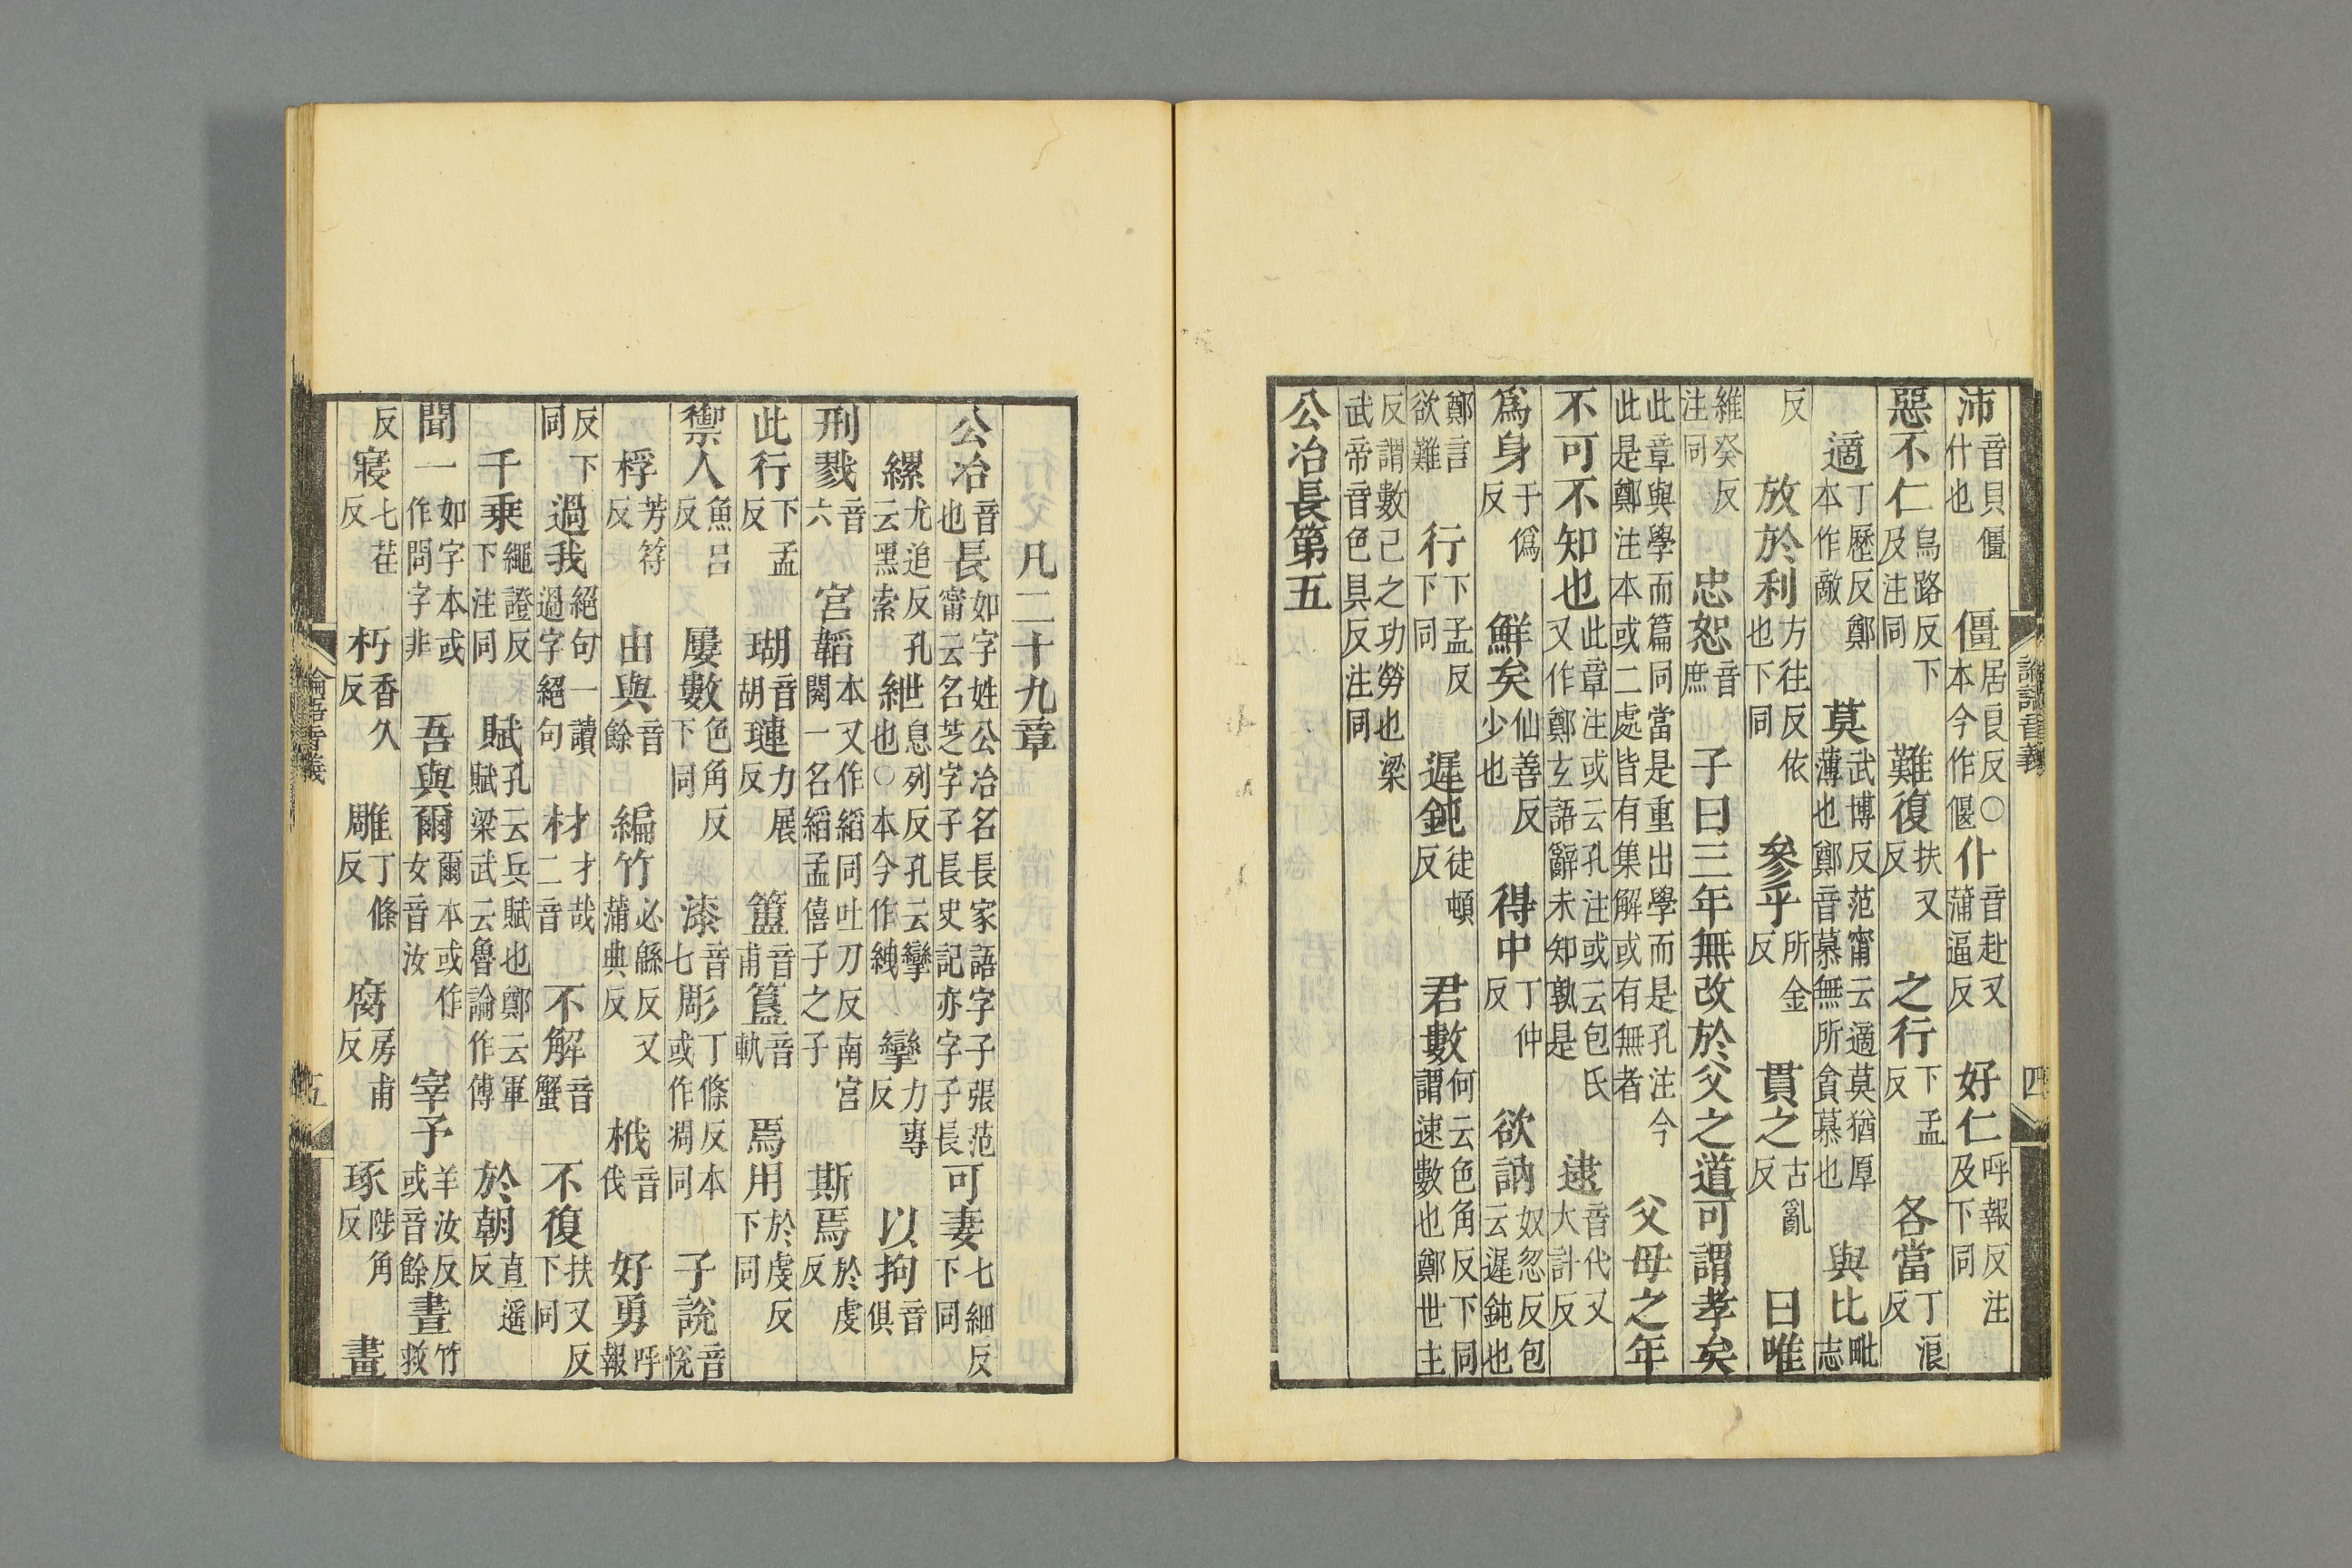 論語音義 四
沛音貝僵什也僵居良反○本今作偃仆音赴又蒲逼反好仁呼報反注及下同
惡不仁烏路反下及注同難復扶又反之行下孟反各當丁浪反
適丁歷反鄭本作敵莫武博反范甯云適莫猶厚薄也鄭音慕無所貪慕也與比毗志
反放於利方往反依也下同參乎所金反貫之古亂反曰唯
維癸反注同忠恕音庶子曰三年無改於父之道可謂孝矣
此章與學而篇同當是重出學而是孔注今此是鄭注本或二處皆有集解或有無者父母之年
不可不知也此章注或云孔注或云包氏又作鄭玄語辭未知孰是逮音代又大計反
爲身于僞反鮮矣仙善反少也得中丁仲反欲訥奴忽反包云遲鈍也
鄭言欲難行下孟反下同遲鈍徒頓反君數何云色角反下同謂速數也鄭世主
反謂數己之功勞也梁武帝音色具反注同
公冶長第五
凡二十九章
公冶音也長如字姓公冶名長家語字子張范甯云名芝字子長史記亦字子長可妻七細反下同
縲尤追反孔云黑索紲息列反孔云攣也○本今作絏攣力專反以拘音俱
刑戮音六宮韜本又作縚同吐刀反南宮閱一名縚孟僖子之子斯焉於虔反
此行下孟反瑚音胡璉力展反簠音甫簋音軌焉用於虔反下同
禦人魚呂反屢數色角反下同漆音七彫丁條反本或作凋同子說音悅
桴芳符反由與音餘編竹必緜反又蒲典反栰音伐好勇呼報
反下同過我絕句一讀過字絕句材才哉二音不解音蟹不復扶又反下同
千乘繩證反下注同賦孔云兵賦也鄭云軍賦梁武云魯論作傅於朝直遙反
聞一如字本或作問字非吾與爾爾本或作女音汝宰予羊汝反或音餘晝竹救
反寢七荏反朽香久反雕丁條反腐房甫反琢陟角反畫
論語音義 五